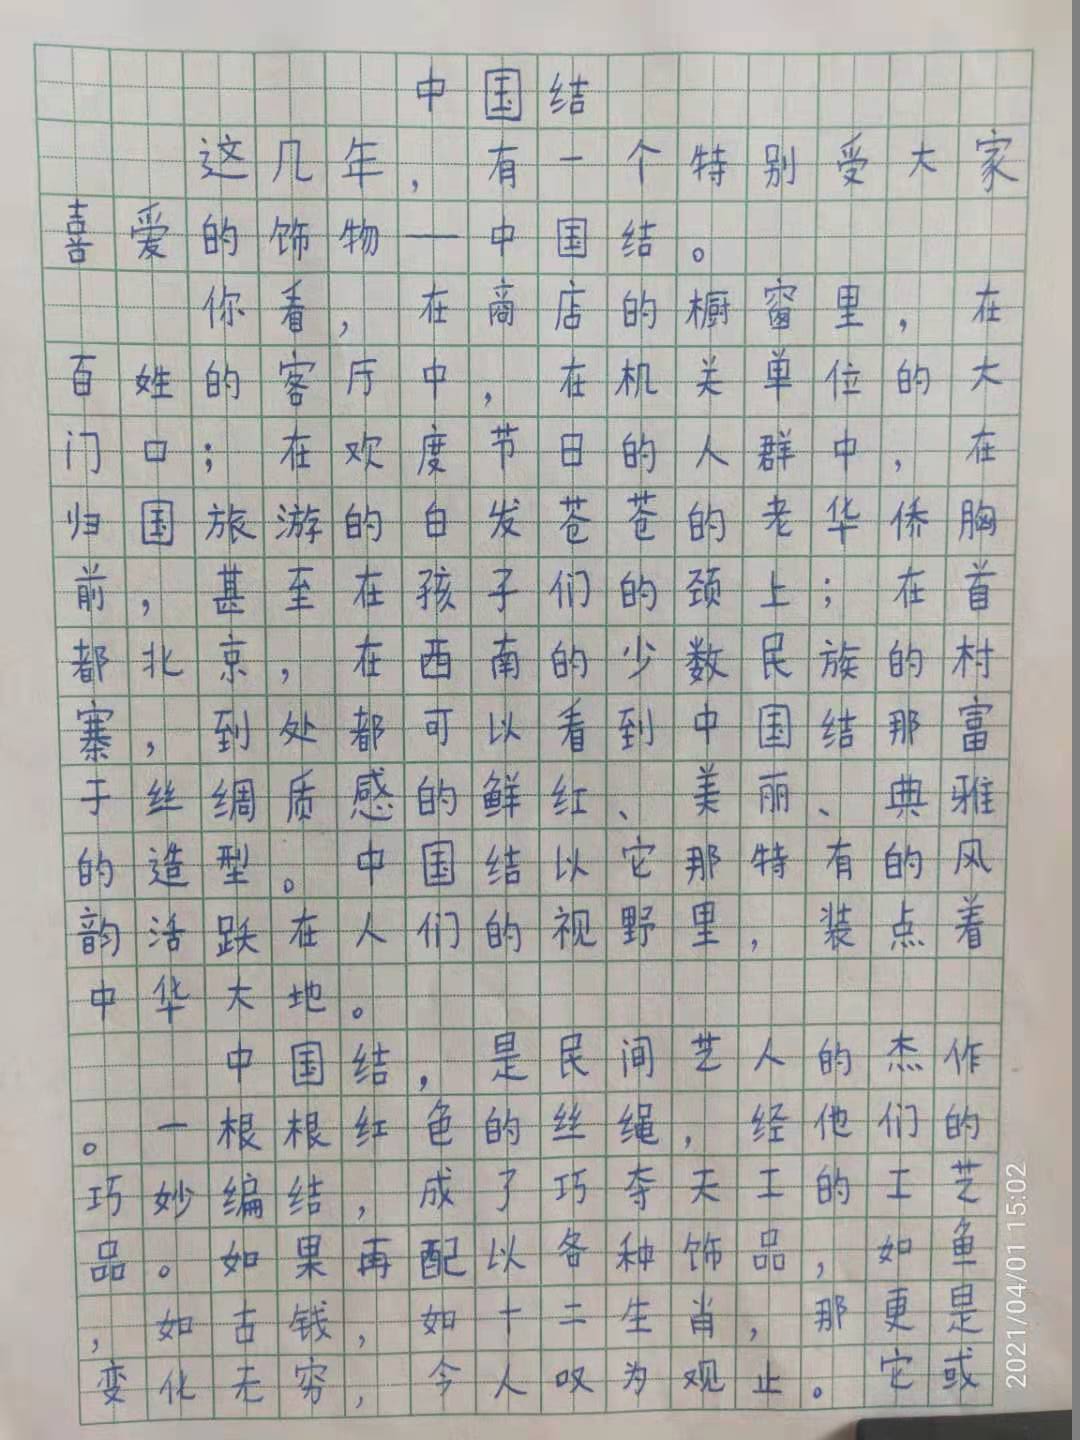 中国结
这几年，有一个特别受大家
喜爱的饰物——中国结。
你看，在商店的橱窗里，在
百姓的客厅中，在机关单位的大
门口；在欢度节日的人群中，在
归国旅游的白发苍苍的老华侨胸
前，甚至在孩子们的颈上；在首
都北京，在西南的少数民族的村
寨，到处都可以看到中国结那富
于丝绸质感的鲜红、美丽、典雅
的造型。中国结以它那特有的风
韵活跃在人们的视野里，装点着
中华大地。
中国结，是民间艺人的杰作
。一根根红色的丝绳，经他们的
巧妙编结，成了巧夺天工的工艺
品。如果再配以各种饰品，如鱼
，如古钱，如十二生肖，那更是
变化无穷，令人叹为观止。它或
2021/04/01 15:02